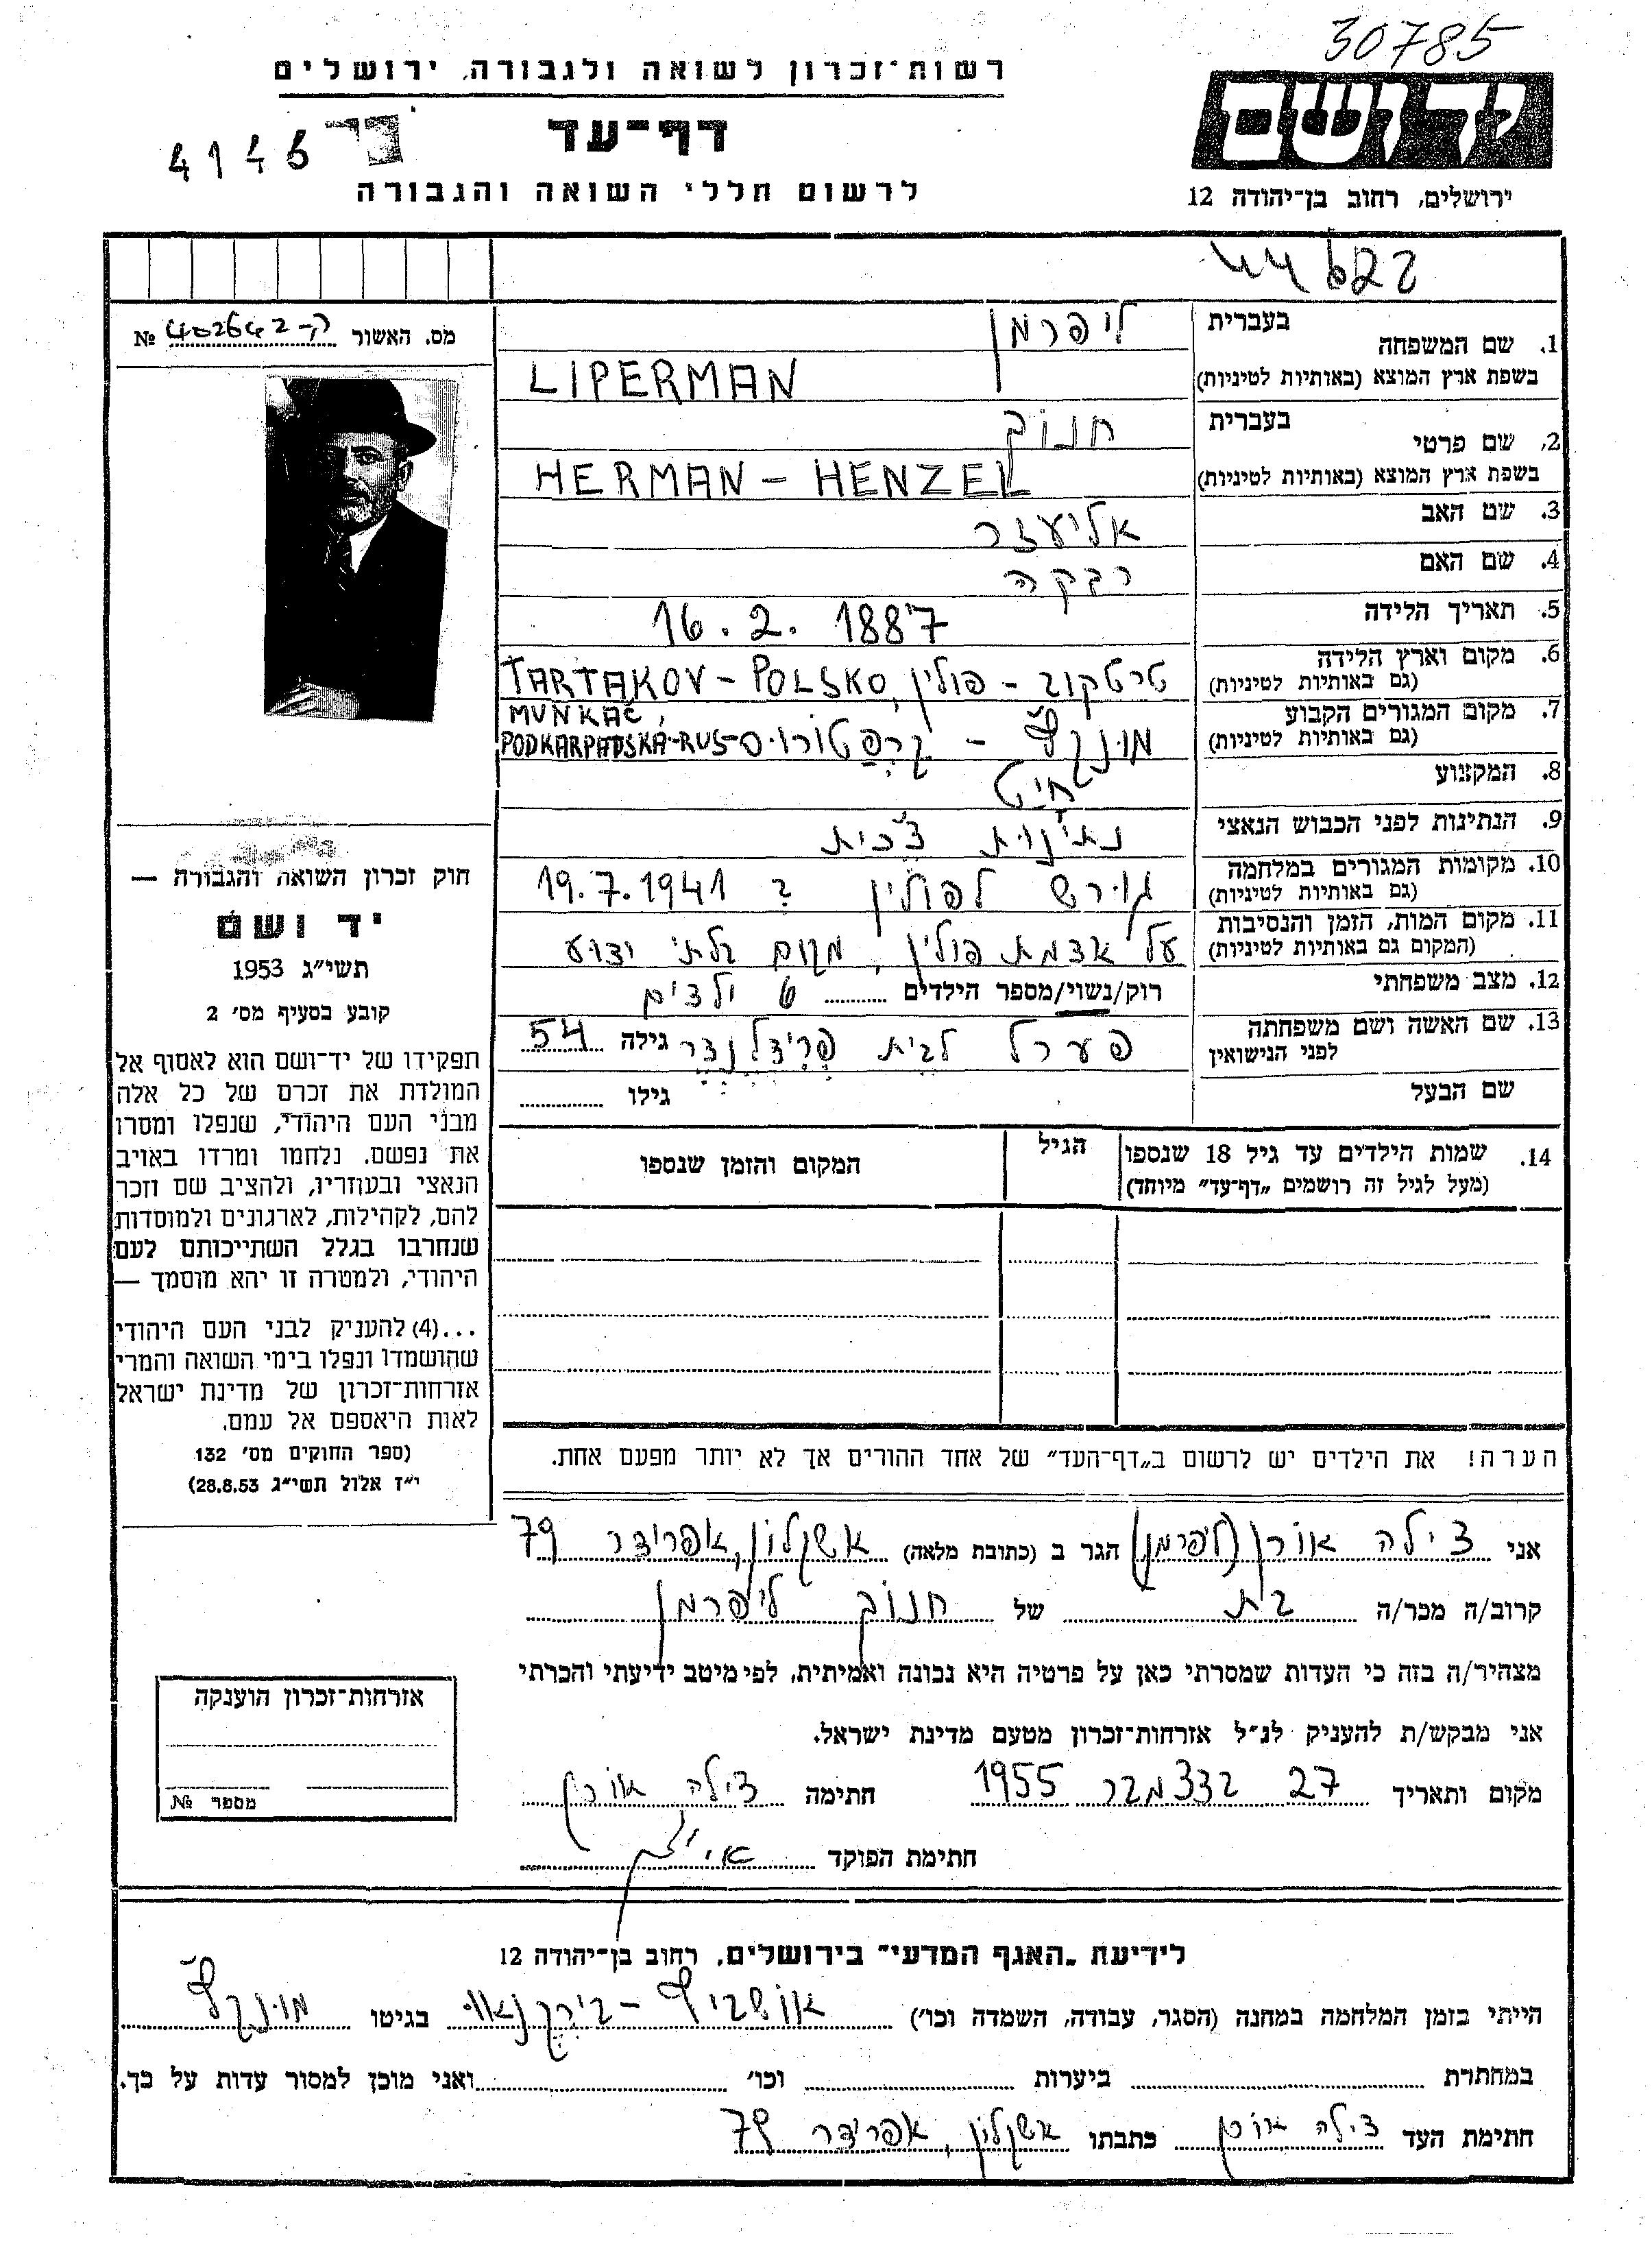 30785
רשות־זכרון לשואה ולגבורה, ירושלים
יד ושם
דף־עד
4146
לרשום חללי השואה והגבורה
ירושלים, רחוב בן־יהודה 12
44622
מס. האשור ק-402642 №
1. שם המשפחה
בעברית ליפרמן
בשפת ארץ המוצא (באותיות לטיניות) LIPERMAN
2. שם פרטי
בעברית חנוך
בשפת ארץ המוצא (באותיות לטיניות) HERMAN - HENZEL
3. שם האב אליעזר
4. שם האם רבקה
5. תאריך הלידה 16.2.1887
6. מקום וארץ הלידה (גם באותיות לטיניות) טרטקוב - פולין, TARTAKOV - POLSKO
7. מקום המגורים הקבוע (גם באותיות לטיניות) מונקץ' - קרפטורוס
MUNKAČ,
PODKARPADSKA-RUS
8. המקצוע חיט
9. הנתינות לפני הכבוש הנאצי נתינות צ'כית
10. מקומות המגורים במלחמה (גם באותיות לטיניות) גורש לפולין ב 19.7.1941
11. מקום המות, הזמן והנסיבות (המקום גם באותיות לטיניות) על אדמת פולין, מקום בלתי ידוע
12. מצב משפחתי רוק/נשוי/מספר הילדים 6 ילדים
13. שם האשה ושם משפחתה לפני הנישואין פערל לבית פרידלנדר גילה 54
שם הבעל גילו
14. שמות הילדים עד גיל 18 שנספו
(מעל לגיל זה רושמים „דף־עד" מיוחד)
הגיל
המקום והזמן שנספו
חוק זכרון השואה והגבורה —
יד ושם
תשי"ג 1953
קובע בסעיף מס' 2
תפקידו של יד־ושם הוא לאסוף אל
המולדת את זכרם של כל אלה
מבני העם היהודי, שנפלו ומסרו
את נפשם, נלחמו ומרדו באויב
הנאצי ובעוזריו, ולהציב שם וזכר
להם, לקהילות, לארגונים ולמוסדות
שנחרבו בגלל השתייכותם לעם
היהודי, ולמטרה זו יהא מוסמך —
...(4) להעניק לבני העם היהודי
שהושמדו ונפלו בימי השואה והמרי
אזרחות־זכרון של מדינת ישראל
לאות היאספם אל עמם.
(ספר החוקים מס' 132
י"ז אלול תשי"ג 28.8.53)
הערה! את הילדים יש לרשום ב„דף־העד" של אחד ההורים אך לא יותר מפעם אחת.
אני צילה אורן (ליפרמן) הגר ב (כתובת מלאה) אשקלון, אפרידר 79
קרוב/ה מכר/ה בת של חנוך ליפרמן
מצהיר/ה בזה כי העדות שמסרתי כאן על פרטיה היא נכונה ואמיתית, לפי מיטב ידיעתי והכרתי
אני מבקש/ת להעניק לנ"ל אזרחות־זכרון מטעם מדינת ישראל.
מקום ותאריך 27 בדצמבר 1955 חתימה צילה אורן
חתימת הפוקד
אזרחות־זכרון הוענקה
מספר №
לידיעת „האגף המדעי" בירושלים, רחוב בן־יהודה 12
הייתי בזמן המלחמה במחנה (הסגר, עבודה, השמדה וכו') אושביץ - בירקנאו בגיטו מונקץ'
במחתרת ביערות וכו' ואני מוכן למסור עדות על כך.
חתימת העד צילה אורן כתבתו אשקלון, אפרידר 79